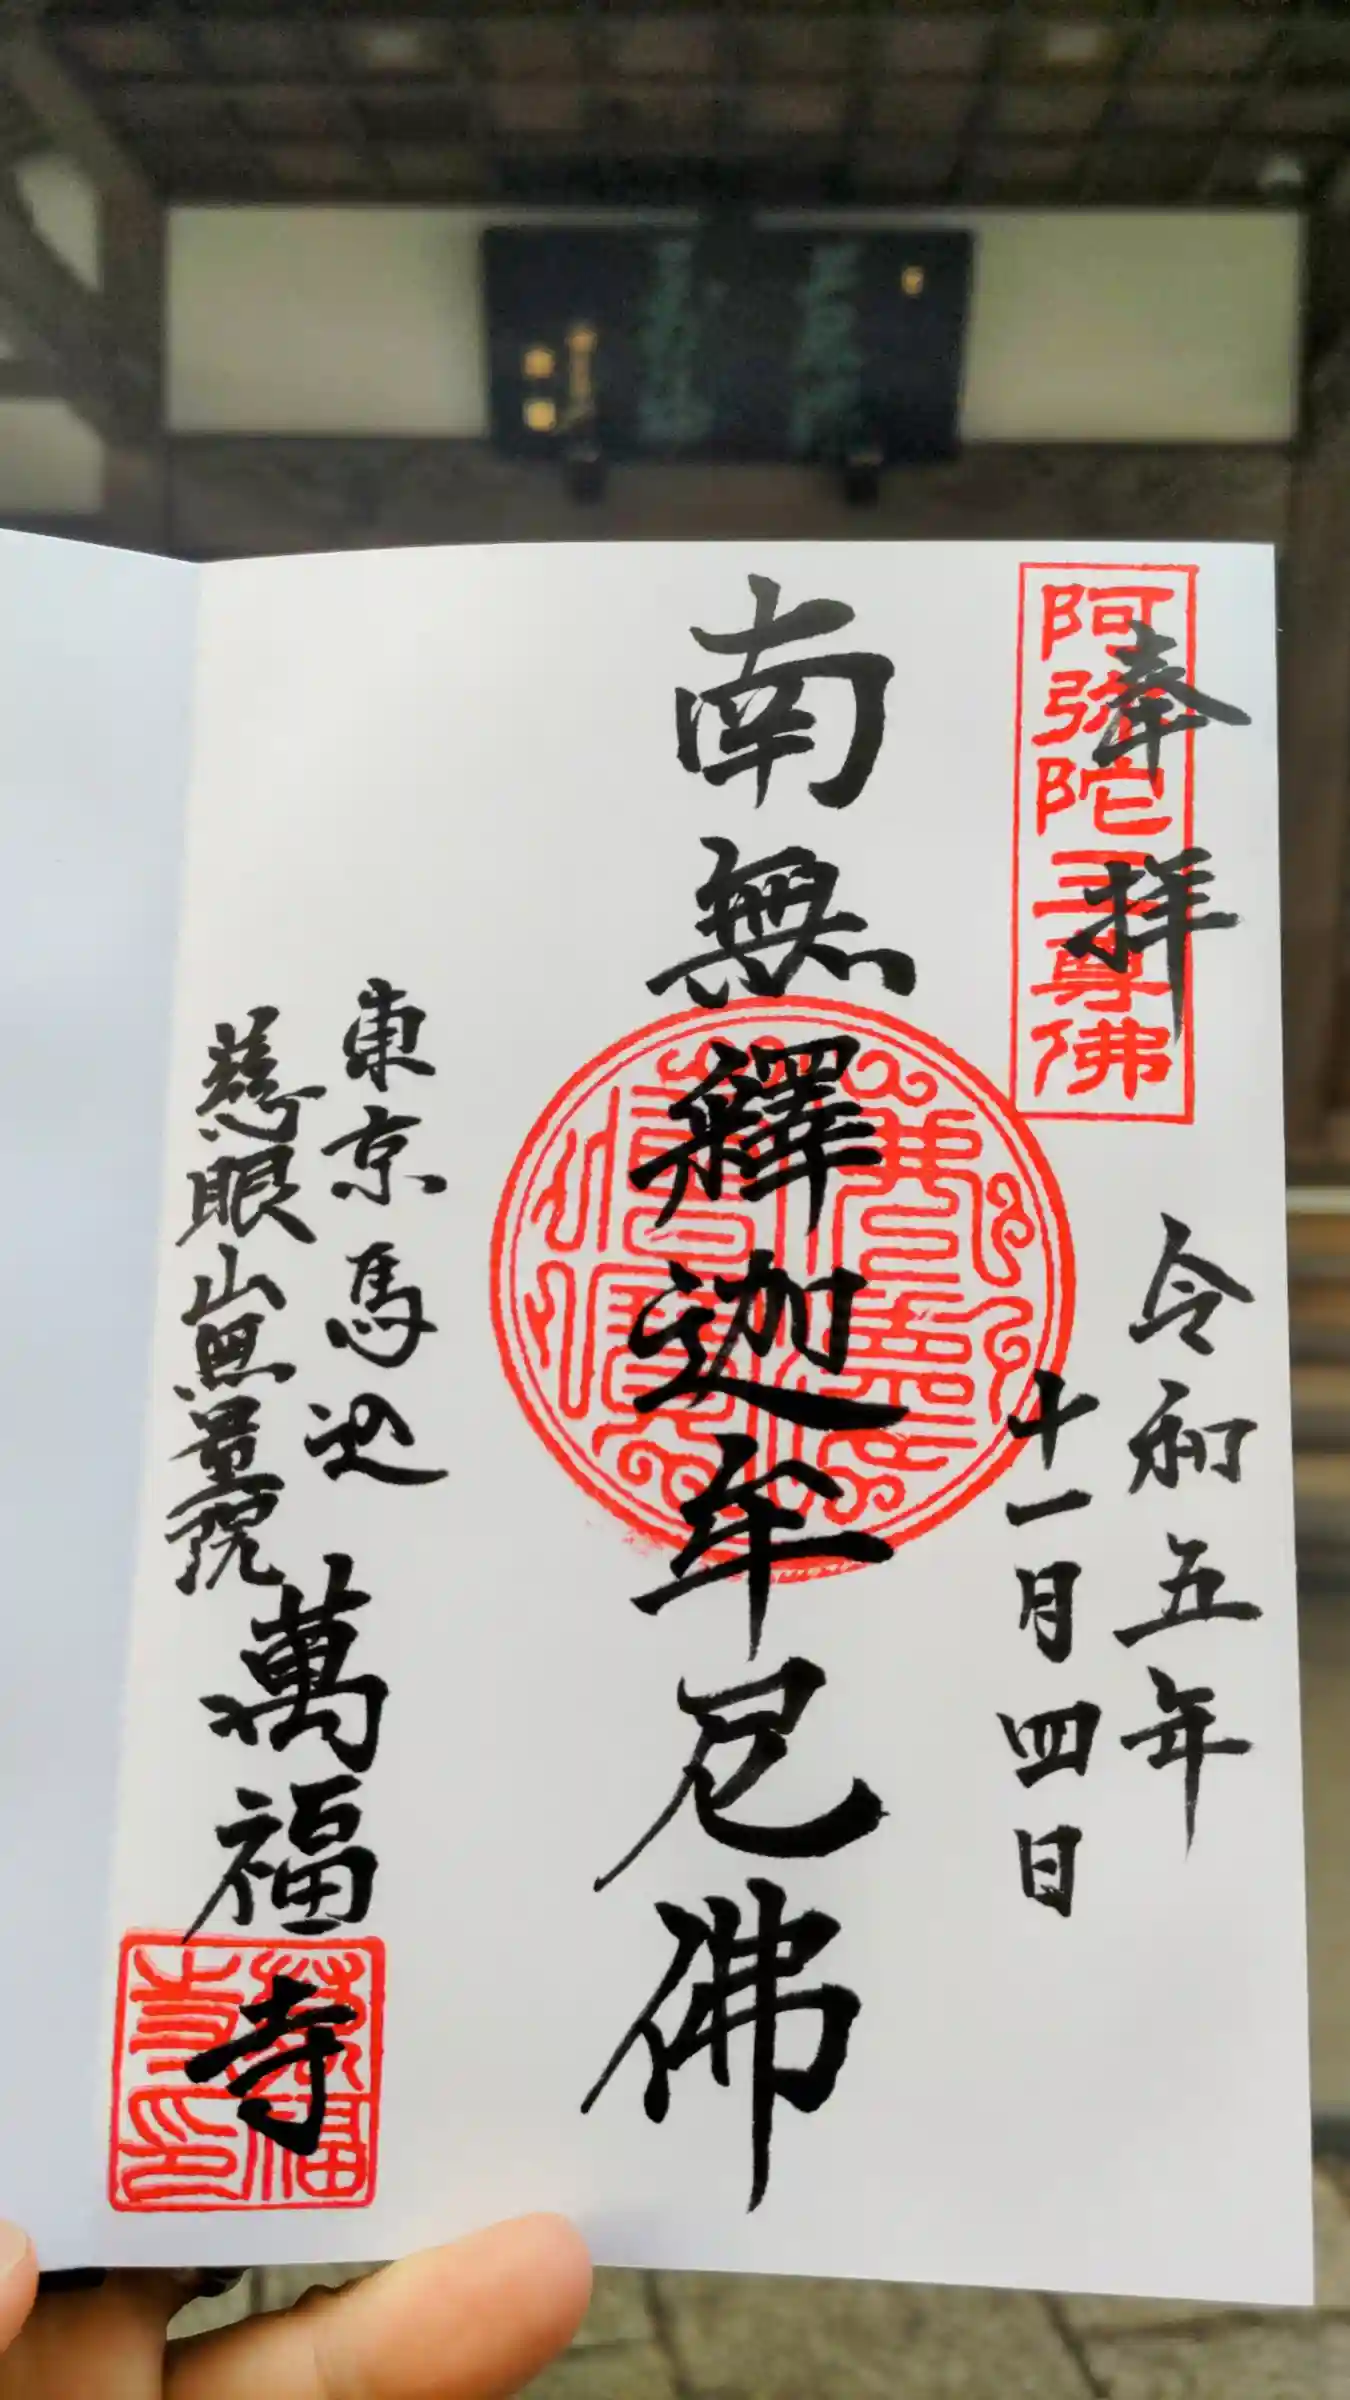 奉拝
阿弥陀三尊佛
令和五年
十一月四日
南無釋迦牟尼佛
東京馬込
慈眼山無量院
萬福寺
萬福寺印